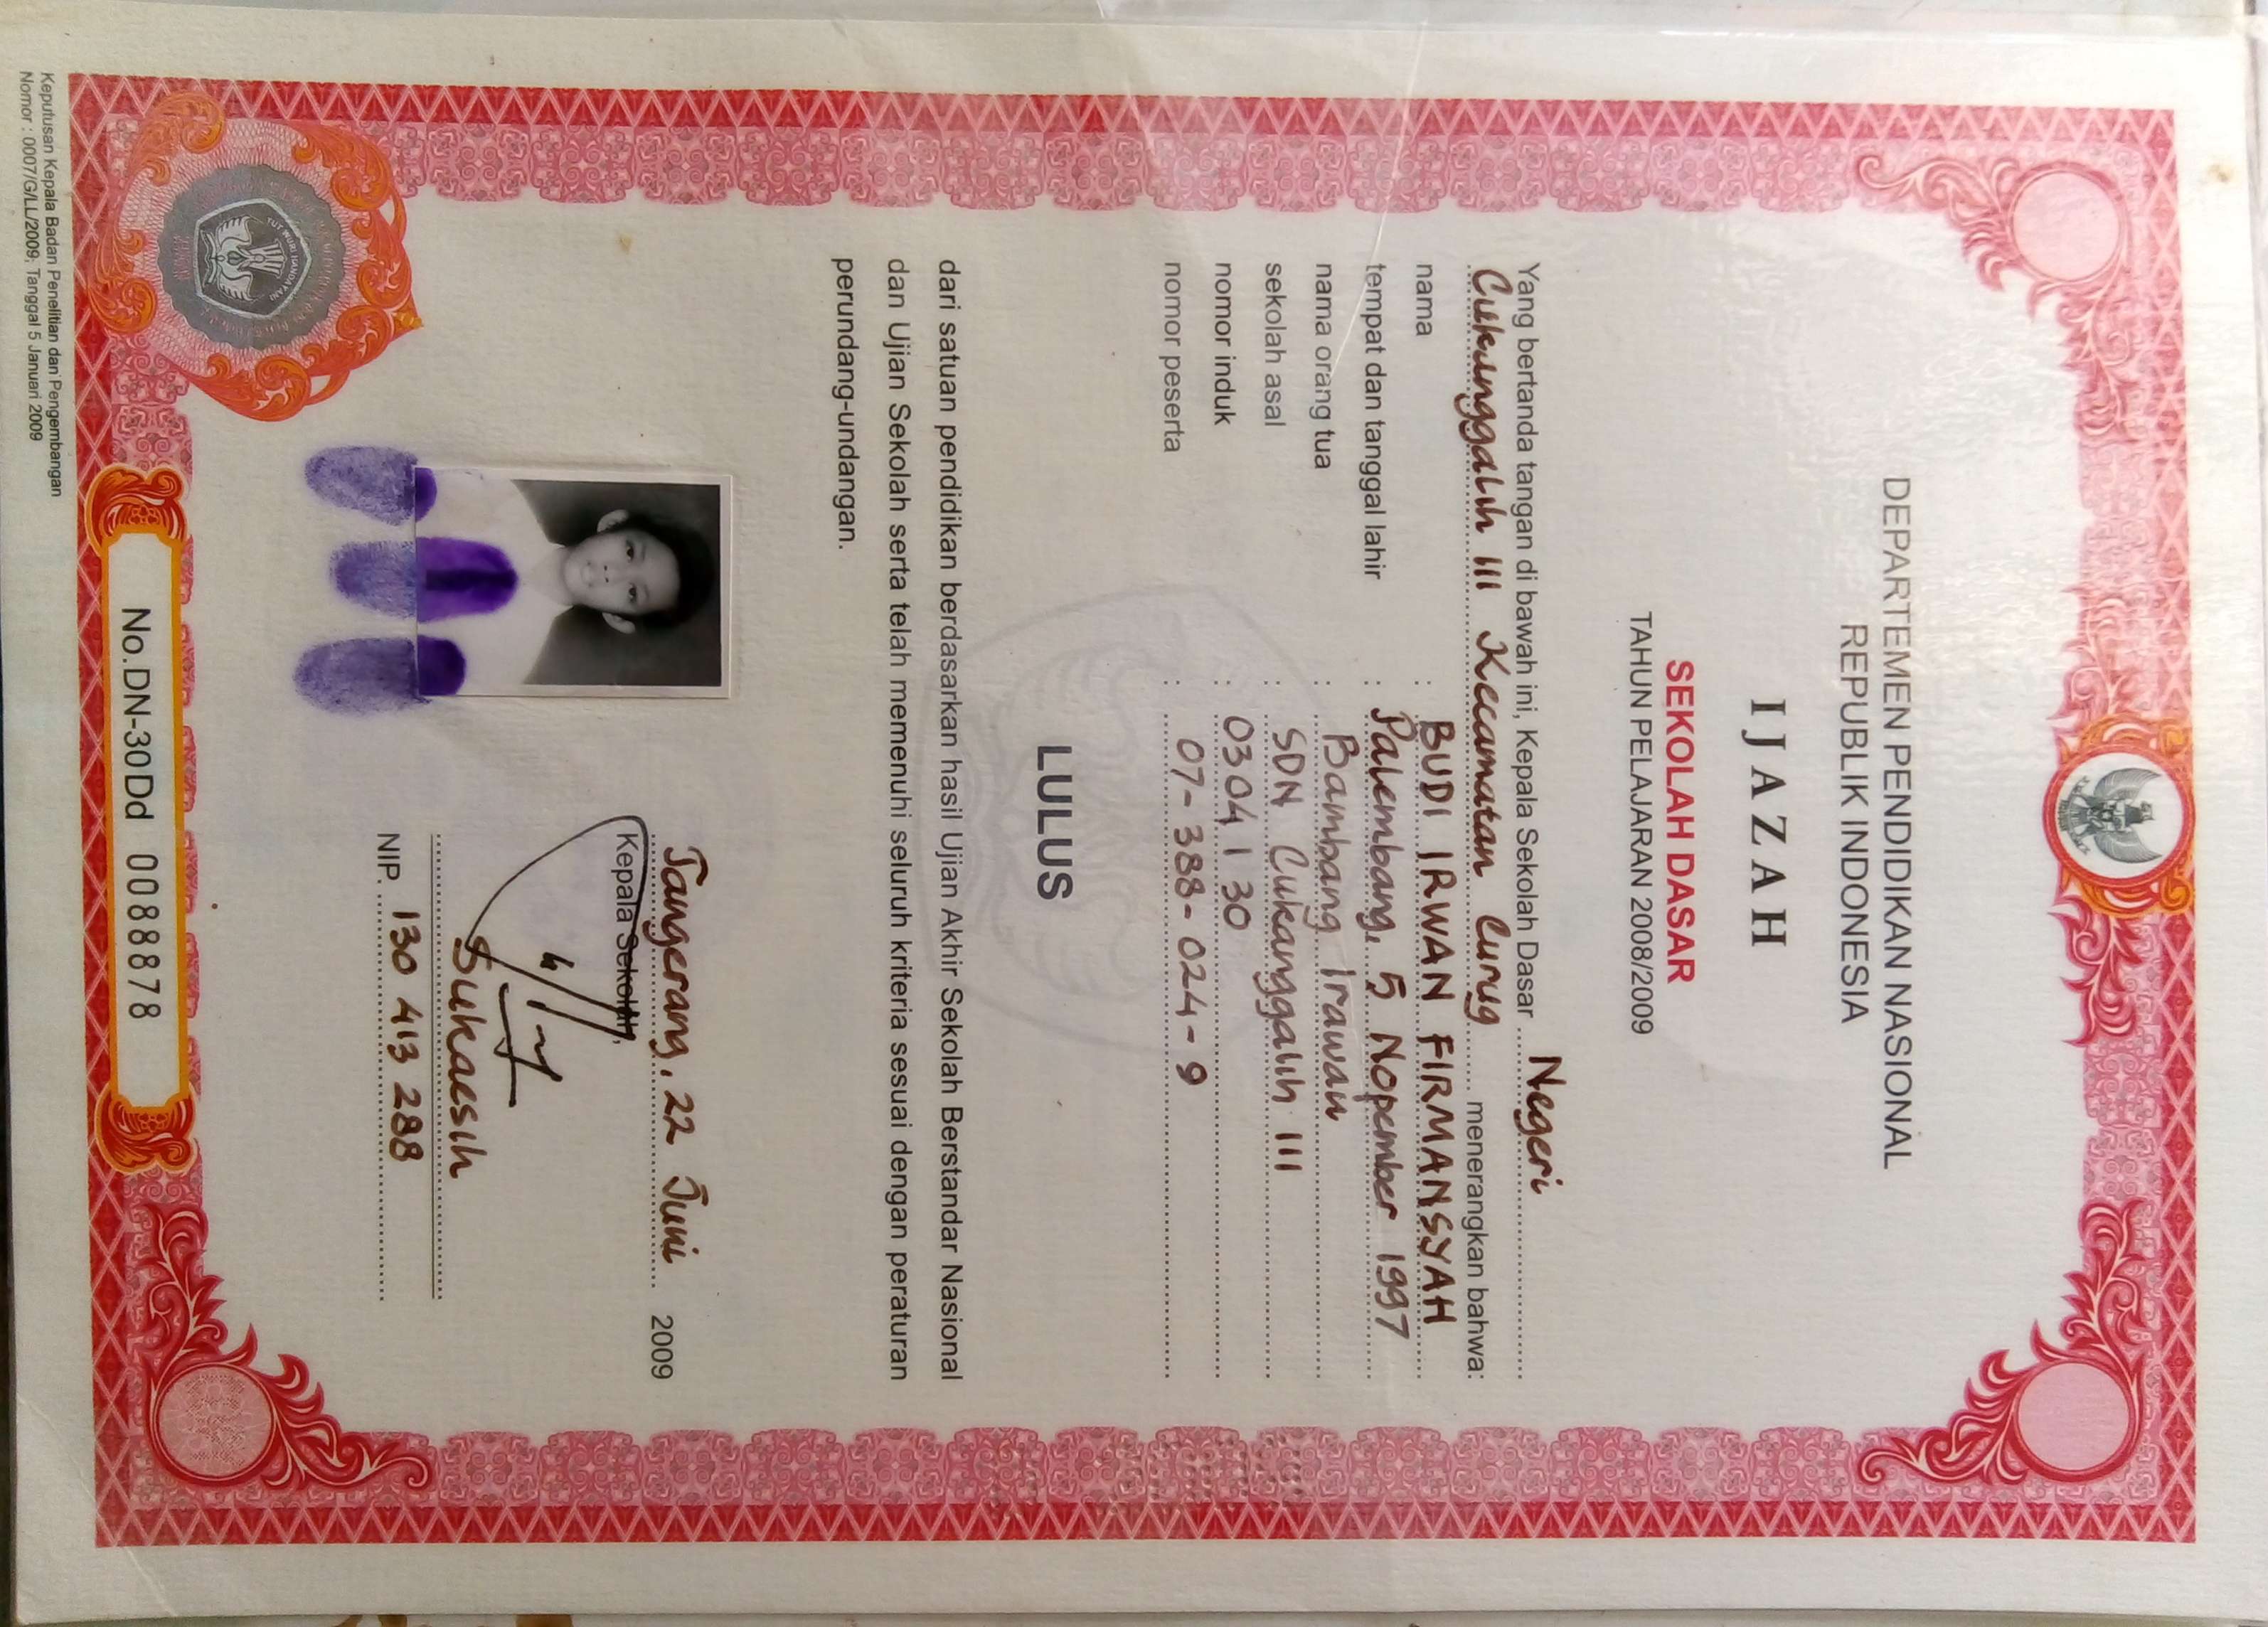 DEPARTEMEN PENDIDIKAN NASIONAL
REPUBLIK INDONESIA
IJAZAH
SEKOLAH DASAR
TAHUN PELAJARAN 2008/2009
Yang bertanda tangan di bawah ini, Kepala Sekolah Dasar Negeri
Cukanggalih III Kecamatan Curug menerangkan bahwa:
nama : BUDI IRWAN FIRMANSYAH
tempat dan tanggal lahir : Palembang, 5 Nopember 1997
nama orang tua : Bambang Irawan
sekolah asal : SDN Cukanggalih III
nomor induk : 0304 1 30
nomor peserta : 07-388-024-9
LULUS
dari satuan pendidikan berdasarkan hasil Ujian Akhir Sekolah Berstandar Nasional
dan Ujian Sekolah serta telah memenuhi seluruh kriteria sesuai dengan peraturan
perundang-undangan.
Tangerang, 22 Juni 2009
Kepala Sekolah,
Sukaesih
NIP. 130 413 288
TUT WURI HANDAYANI
No.DN-30Dd 0088878
Keputusan Kepala Badan Penelitian dan Pengembangan
Nomor : 0007/G/LL/2009, Tanggal 5 Januari 2009